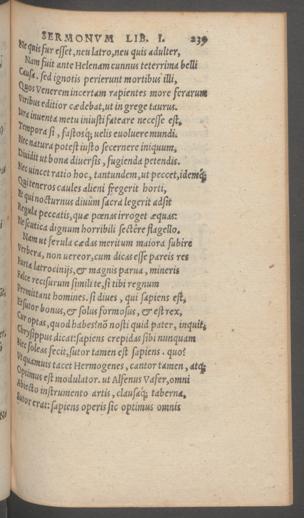 SERMONVM LIB. I. 239
Ne quis fur esset, neu latro, neu quis adulter,
Nam fuit ante Helenam cunnus teterrima belli
Causa. sed ignotis perierunt mortibus illi,
Quos Venerem incertam rapientes more ferarum
Viribus editior cædebat, ut in grege taurus.
Iura inuenta metu iniusti fateare necesse est,
Tempora si, fastosq; uelis euoluere mundi.
Nec natura potest iusto secernere iniquum,
Diuidit ut bona diuersis, fugienda petendis.
Nec uincet ratio hoc, tantundem, ut peccet, idemq;
Qui teneros caules alieni fregerit horti,
Et qui nocturnus diuûm sacra legerit adsit
Regula peccatis, quæ pœnas irroget æquas:
Ne scutica dignum horribili sectêre flagello.
Nam ut ferula cædas meritum maiora subire
Verbera, non uereor, cum dicas esse pareis res
Furta latrocinijs, & magnis parua, mineris
Falce recisurum simili te, si tibi regnum
Permittant homines. si diues, qui sapiens est,
Et sutor bonus, & solus formosus, & est rex,
Cur optas, quod habes? nõ nosti quid pater, inquit,
Chrysippus dicat: sapiens crepidas sibi nunquam
Nec soleas fecit, sutor tamen est sapiens. quo?
Vt quamuis tacet Hermogenes, cantor tamen, atq;
Optimus est modulator. ut Alfenus Vafer, omni
Abiecto instrumento artis, clausaq; taberna,
Sutor erat: sapiens operis sic optimus omnis